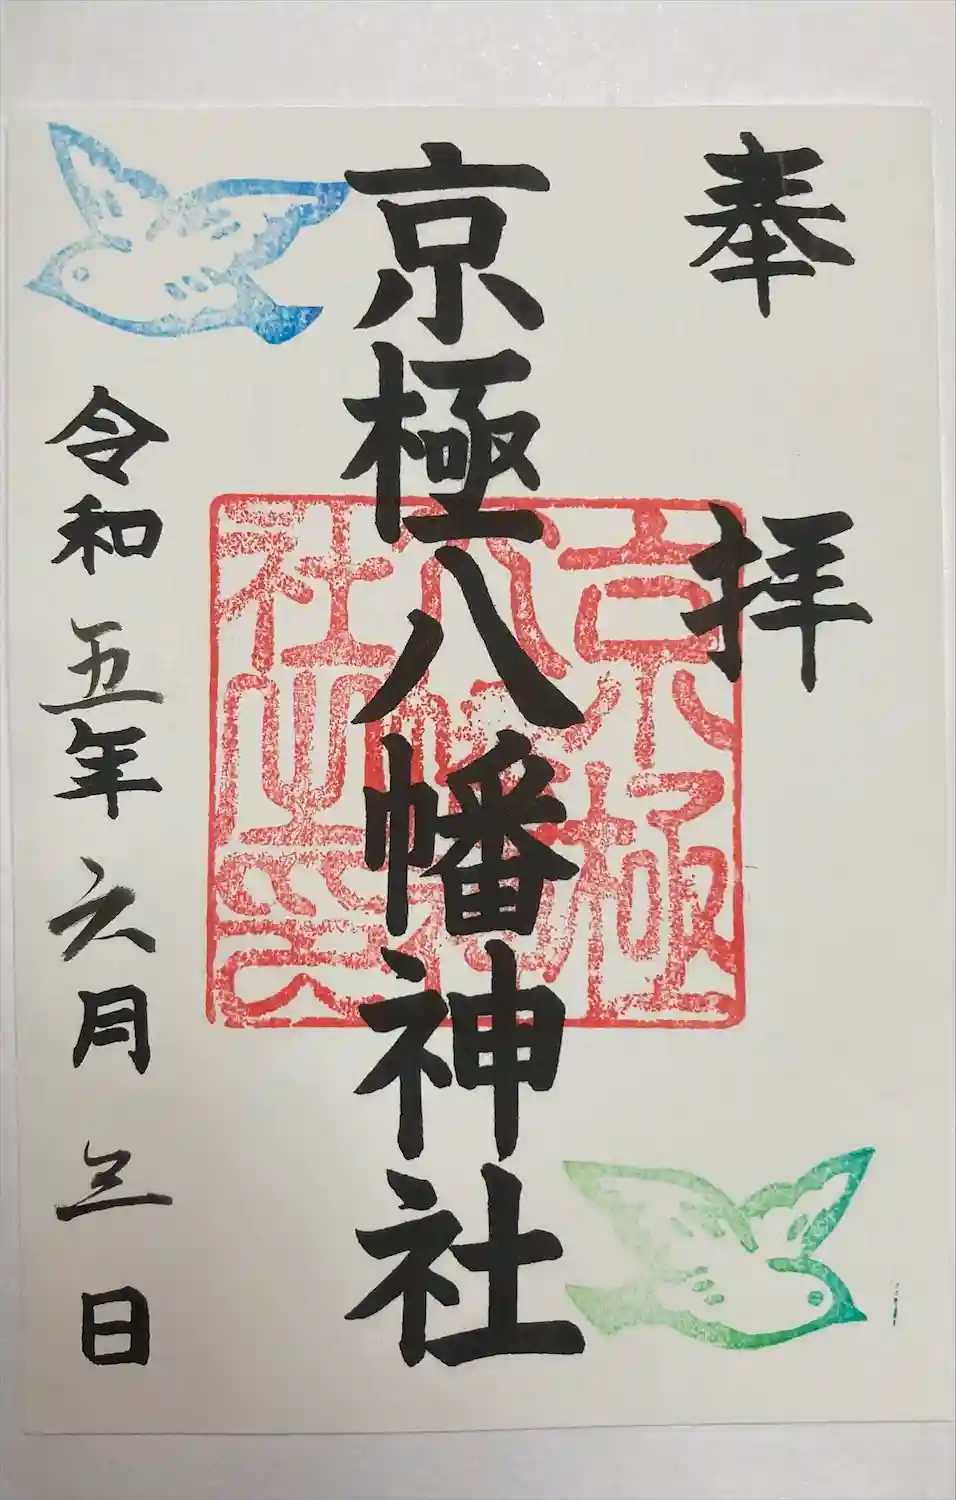 奉拝
京極八幡神社
令和五年六月三日
京極八幡神社之印